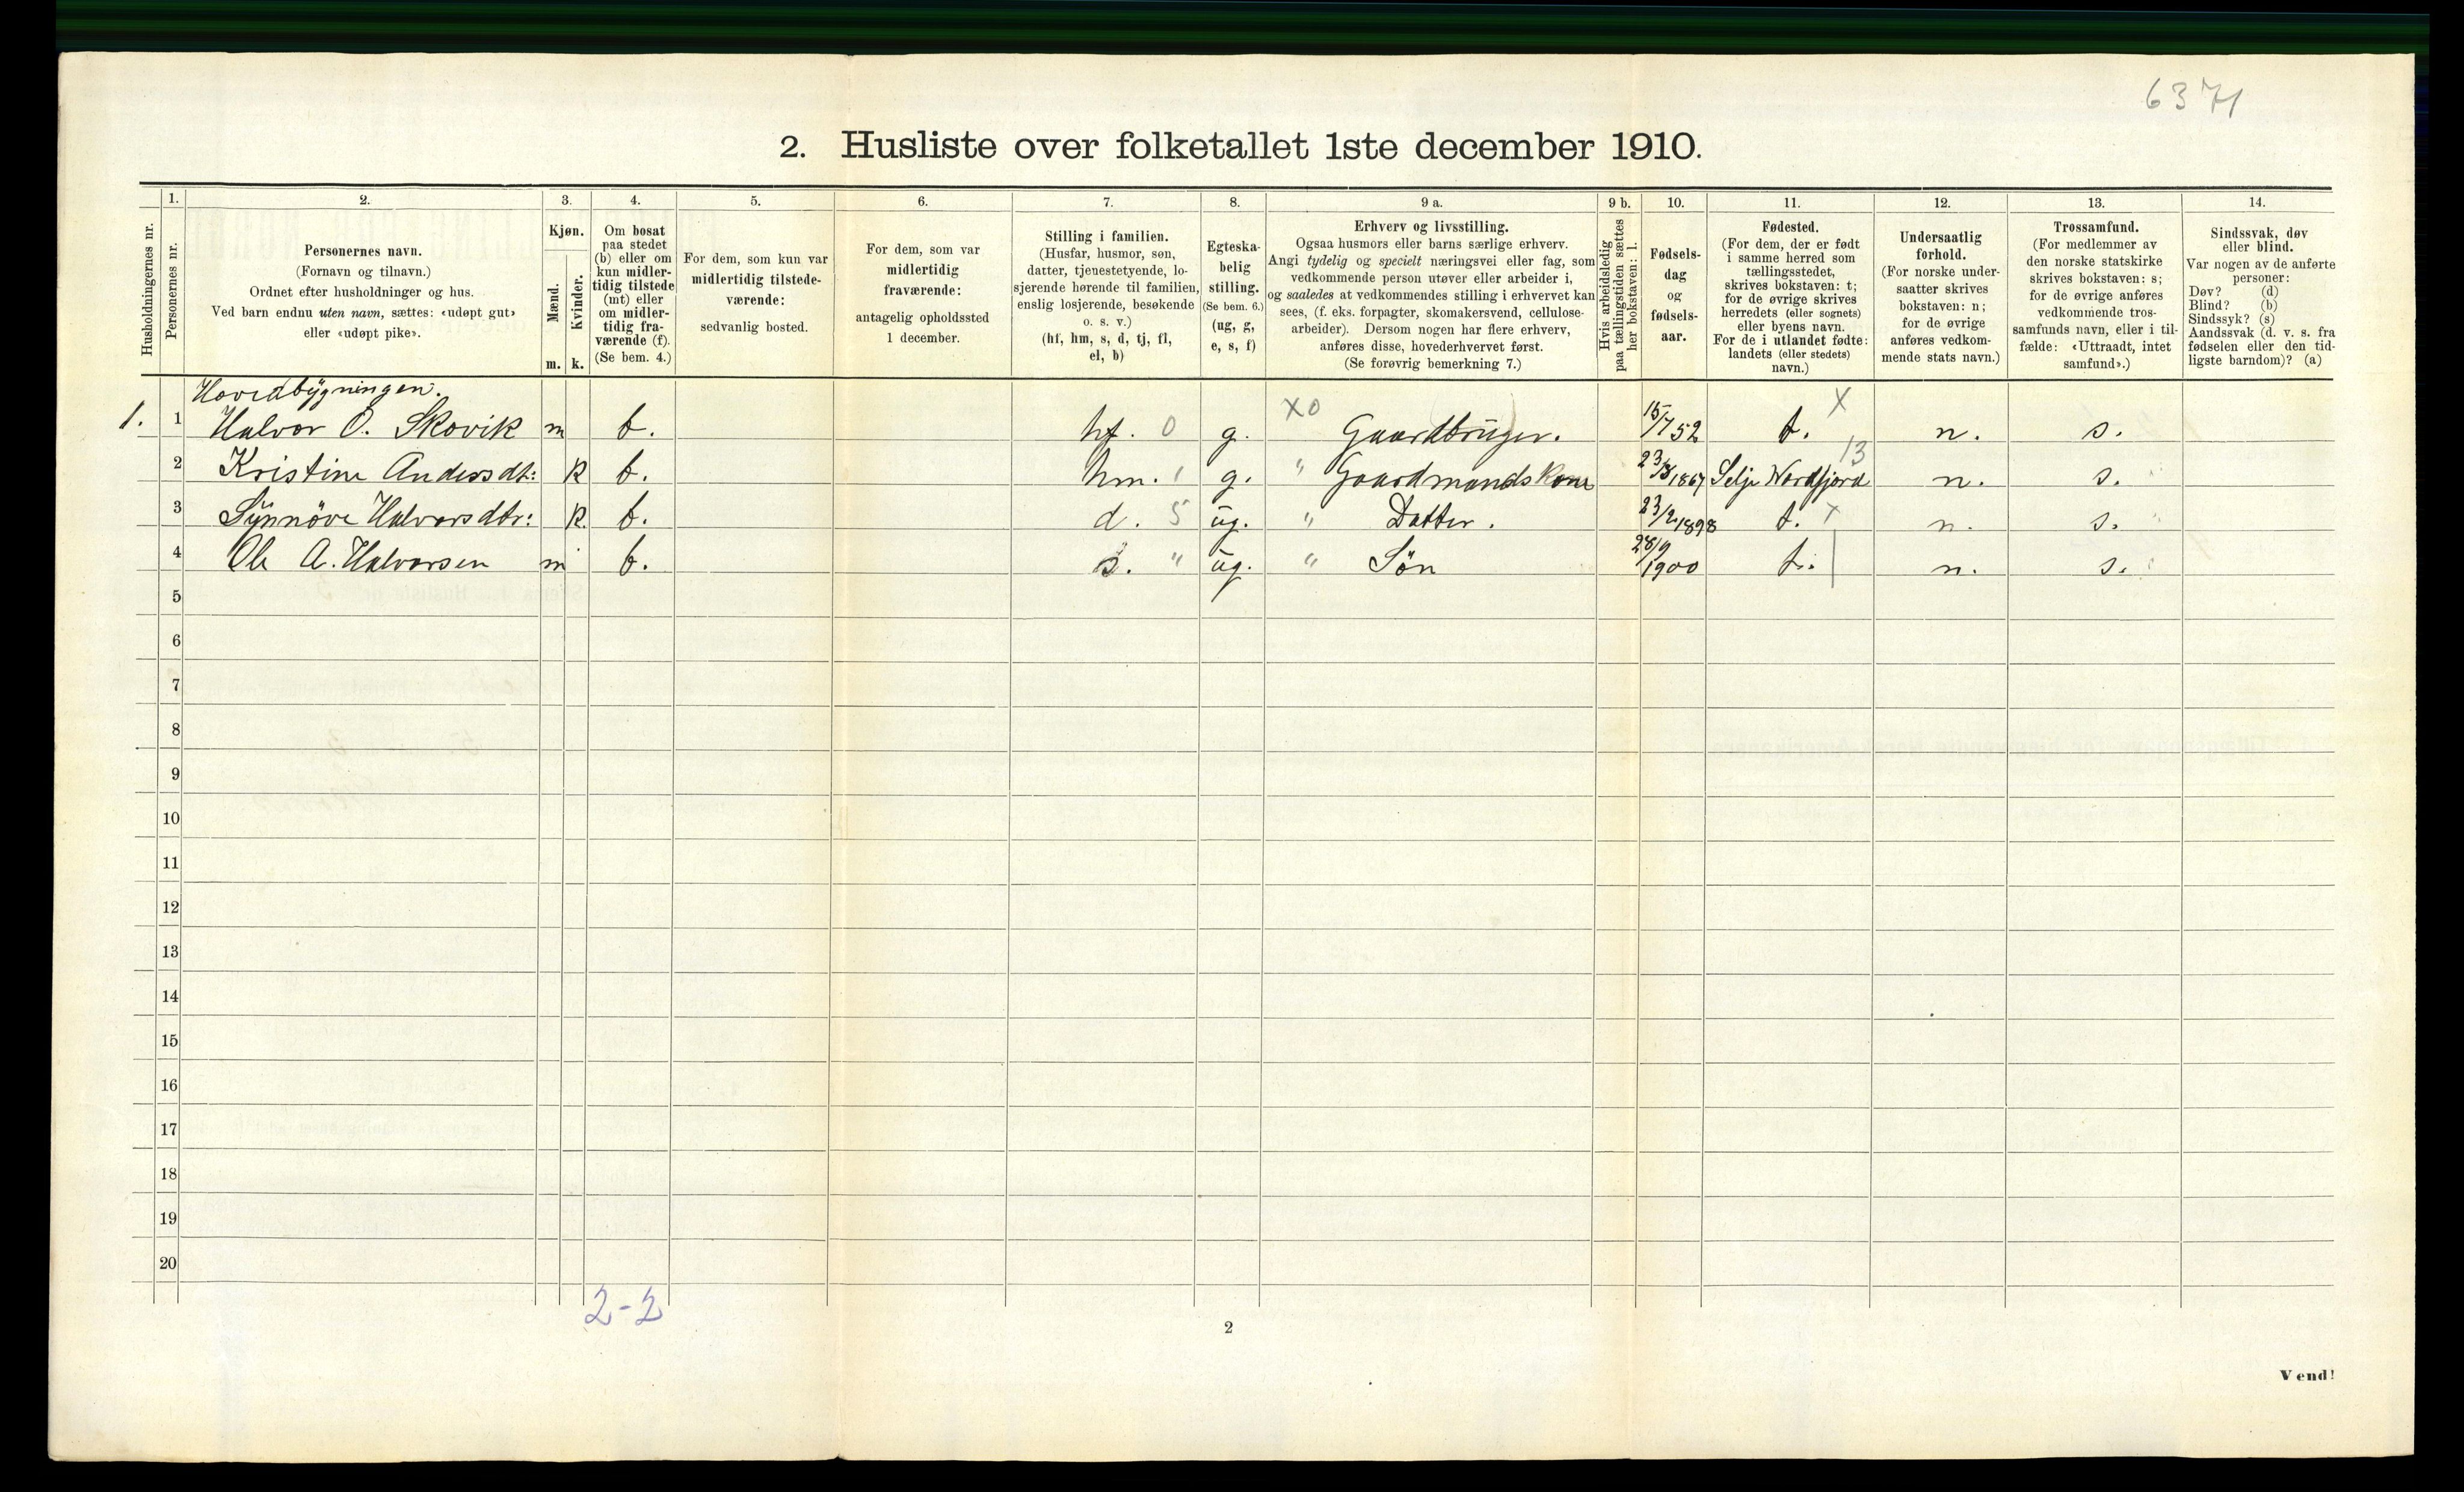 6371
2. Husliste over folketallet 1ste december 1910.
Husholdningernes nr.
1.
Personernes nr.
2.
Personernes navn.
(Fornavn og tilnavn.)
Ordnet efter husholdninger og hus.
Ved barn endnu uten navn, sættes: «udøpt gut»
eller «udøpt pike».
3.
Kjøn.
Mænd.
Kvinder.
m. k.
4.
Om bosat
paa stedet
(b) eller om
kun midler-
tidig tilstede
(mt) eller
om midler-
tidig fra-
værende (f).
(Se bem. 4.)
5.
For dem, som kun var
midlertidig tilstede-
værende:
sedvanlig bosted.
6.
For dem, som var
midlertidig
fraværende:
antagelig opholdssted
1 december.
7.
Stilling i familien.
(Husfar, husmor, søn,
datter, tjenestetyende, lo-
sjerende hørende til familien,
enslig losjerende, besøkende
o. s. v.)
(hf, hm, s, d, tj, fl,
el, b)
8.
Egteska-
belig
stilling.
(Se bem. 6.)
(ug, g,
e, s, f)
9 a.
Erhverv og livsstilling.
Ogsaa husmors eller barns særlige erhverv.
Angi tydelig og specielt næringsvei eller fag, som
vedkommende person utøver eller arbeider i,
og saaledes at vedkommendes stilling i erhvervet kan
sees, (f. eks. forpagter, skomakersvend, cellulose-
arbeider). Dersom nogen har flere erhverv,
anføres disse, hovederhvervet først.
(Se forøvrig bemerkning 7.)
9 b.
Hvis arbeidsledig
paa tællingstiden sættes
her bokstaven: l.
10.
Fødsels-
dag
og
fødsels-
aar.
11.
Fødested.
(For dem, der er født
i samme herred som
tællingsstedet,
skrives bokstaven: t;
for de øvrige skrives
herredets (eller sognets)
eller byens navn.
For de i utlandet fødte:
landets (eller stedets)
navn.)
12.
Undersaatlig
forhold.
(For norske under-
saatter skrives
bokstaven: n;
for de øvrige
anføres vedkom-
mende stats navn.)
13.
Trossamfund.
(For medlemmer av
den norske statskirke
skrives bokstaven: s;
for de øvrige anføres
vedkommende tros-
samfunds navn, eller i til-
fælde: «Uttraadt, intet
samfund».)
14.
Sindssvak, døv
eller blind.
Var nogen av de anførte
personer:
Døv? (d)
Blind? (b)
Sindssyk? (s)
Aandssvak (d. v. s. fra
fødselen eller den tid-
ligste barndom)? (a)
Hovedbygningen.
1. 1 Halvor O. Skovik m b. hf. 0 g. X0 Gaardbruger. 15/7 52 t. X n. s.
2 Kristine Andersdt: k b. hm. 1 g. " Gaardmandskone 1867 Selje Nordfjord 13 n. s.
3 Synnöve Halvorsdtr: k. b. d. 5 ug. " Datter. 23/2 1898 t. x n. s.
4 Ole A. Halvorsen m b. s. " ug. " Søn 28/9 1900 t. n. s.
5
6
7
8
9
10
11
12
13
14
15
16
17
18
19
20
2-2
2
Vend!